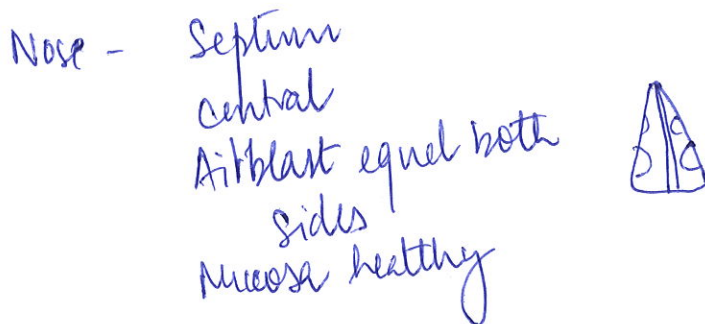 Nose - Septum
central
Airblast equal both
sides
Mucosa healthy